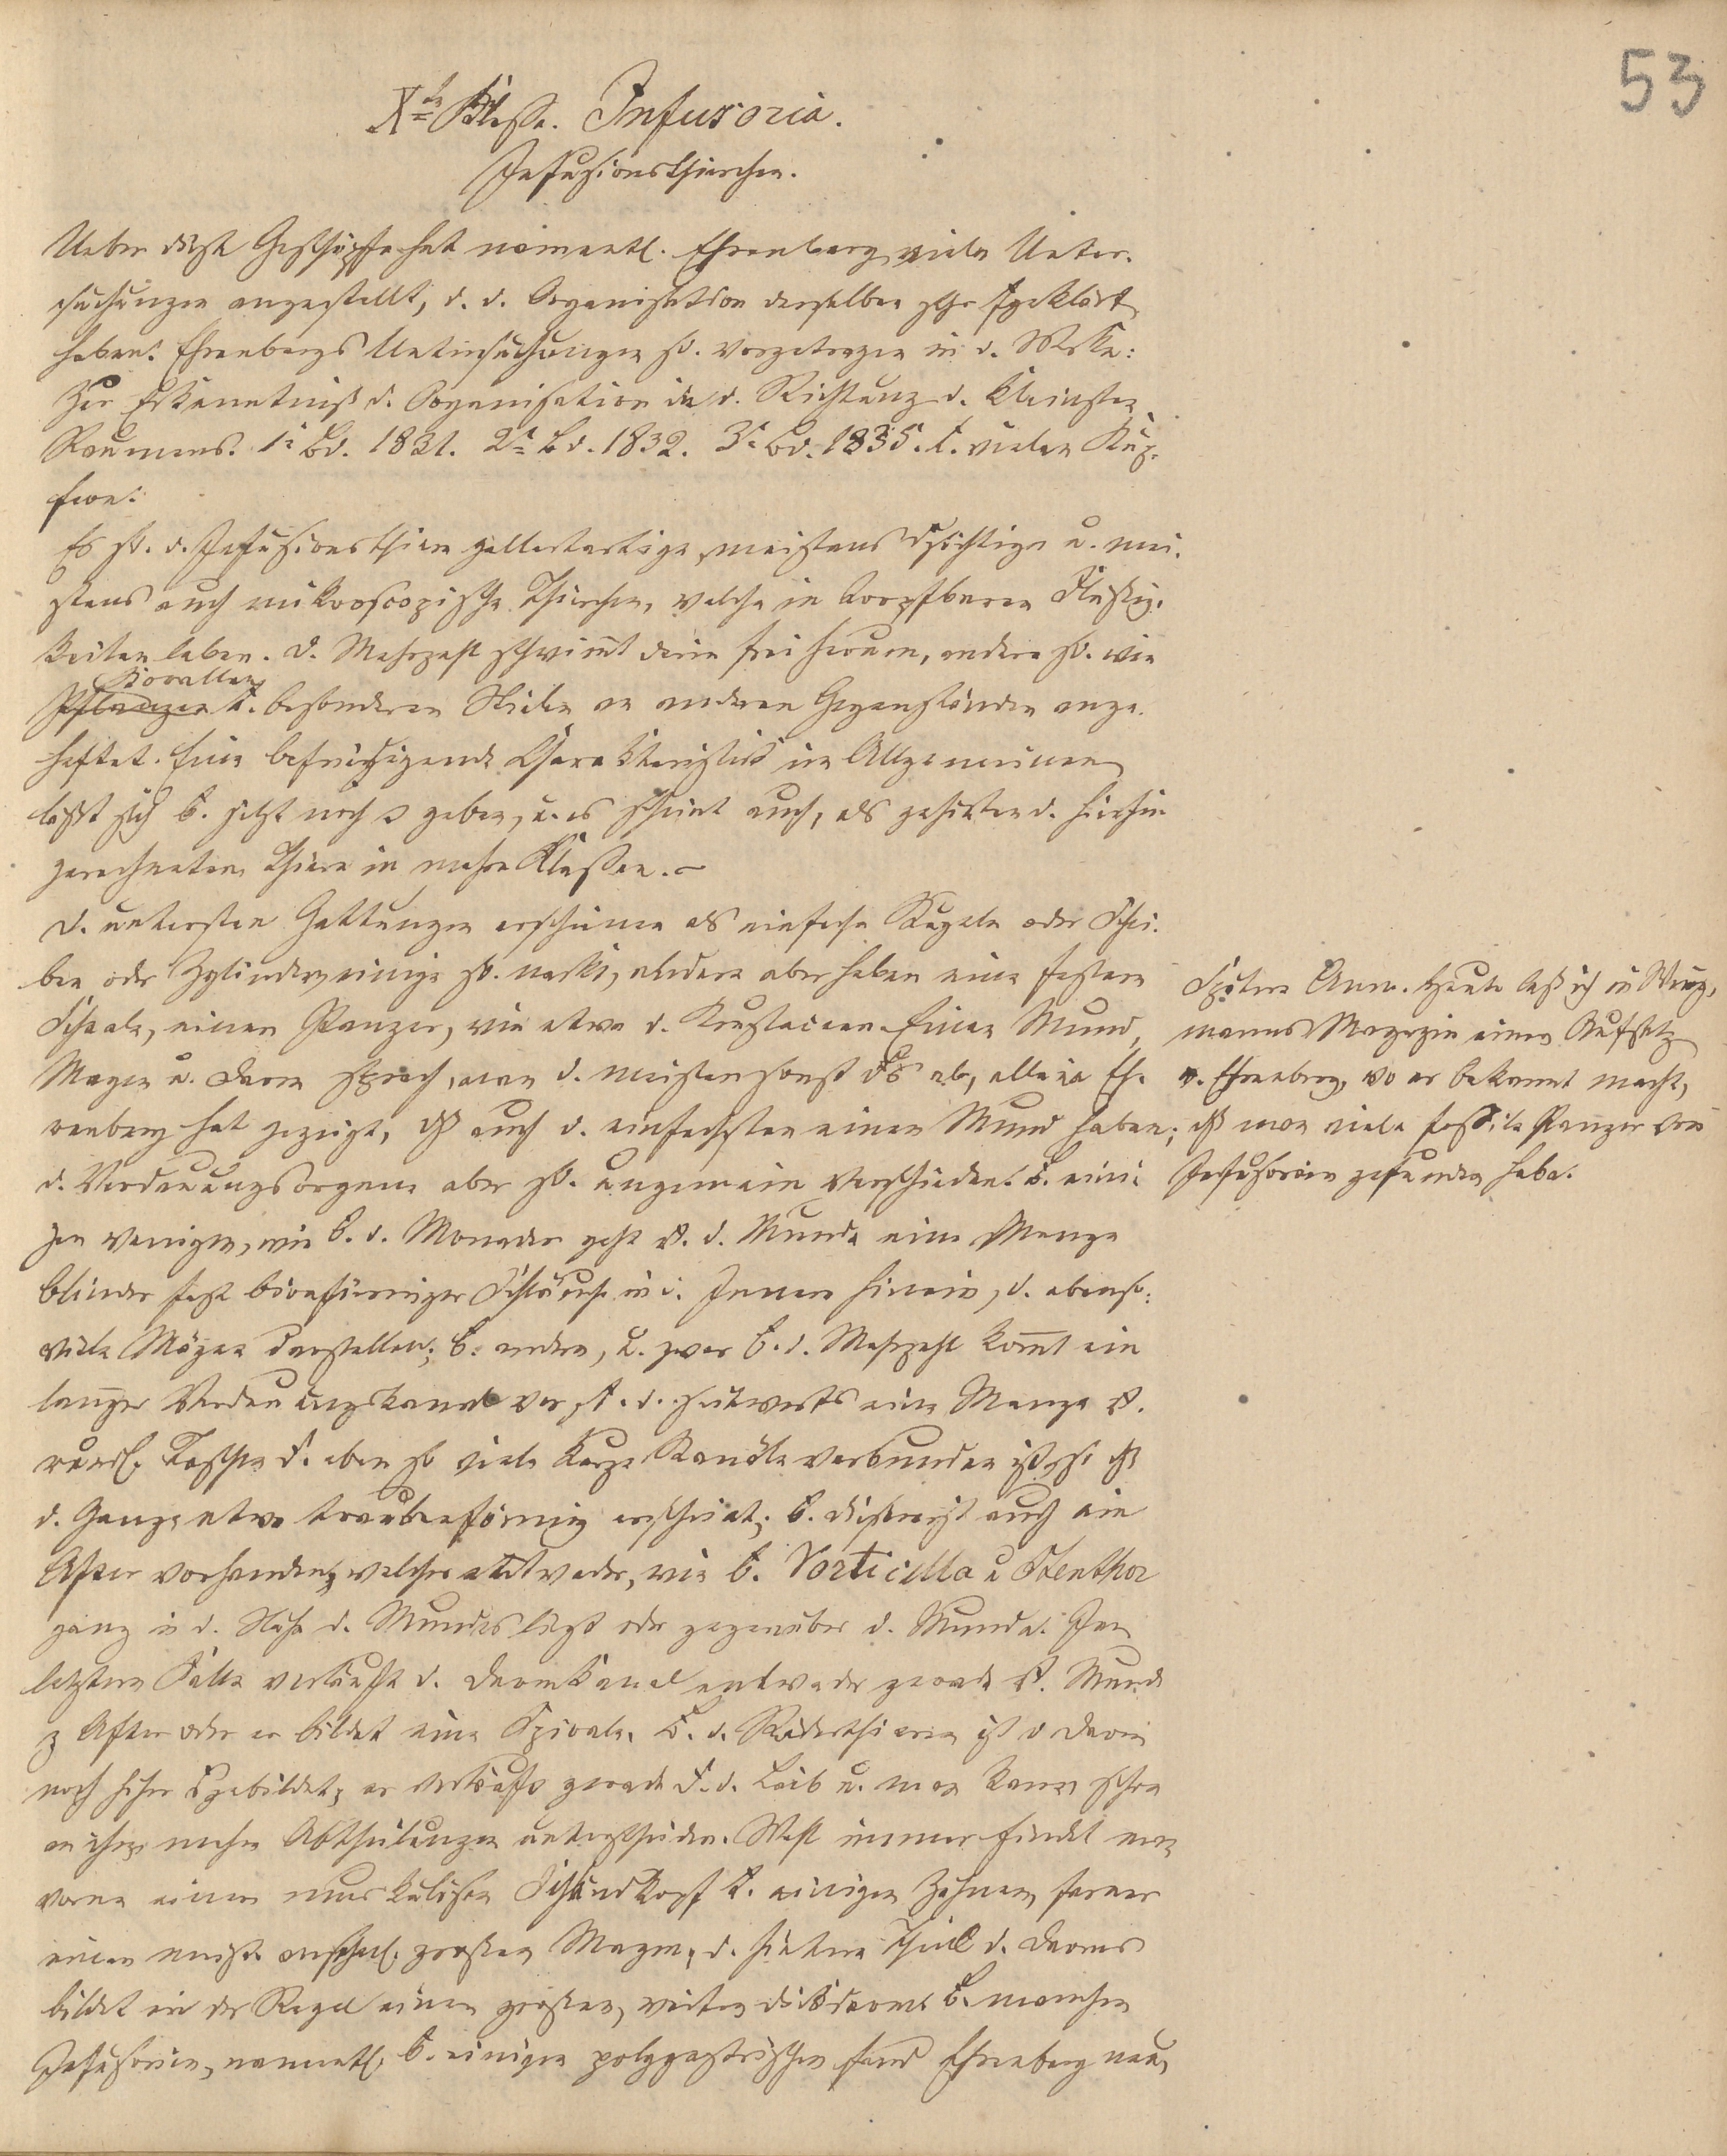 53
Xte Klasse. Infusoria.
Infusionsthierchen.
Ueber diese Geschöpfe hat namentl. Ehrenberg viele Unter-
suchungen angestellt, d. d. Organisation derselben sehr aufgeklärt
haben. Ehrenbergs Untersuchungen sd. vorgetragen in d. Werke:
Zur Erkenntniß d. Organisation in d. Richtung d. kleinsten
Raumes. 1r Bd. 1831. 2r Bd. 1832. 3r Bd. 1835. t. vielen Kup-
fern.
Es sd. d. Infusionsthiere gallertartige, meistens dsichtige u. mei-
stens auch mikroscopische Thierchen, welche in tropfbaren Flüssig-
keiten leben. D. Mehrzahl schwimt darin frei herum, andere sd. wie
Korallen
Pflanzen t. besonderen Stielen an anderen Gegenständen ange-
heftet. Eine befriedigende Charakteristik im Allgemeinen
läßt sich b. jetzt noch geben, u. es scheint auch, als gehörten d. hierhin
gerechneten Thiere in mehre Klassen. –
D. untersten Gattungen erscheinen als einfache Kugeln oder Schei-
ben oder Zylinder, einige sd. nackt, andere aber haben eine festere
Schale, einen Panzer, wie etwa d. Krustaceen. Einen Mund,
Magen u. Darm sprach man d. meisten sonst ab, allein Eh-
renberg hat gezeigt, dß auch d. einfachsten einen Mund haben;
d. Verdauungsorgane aber sd. ungemein verschieden. B. eini-
gen wenigen, wie b. d. Monaden geht d. Munde eine Menge
blinder fast birnförmiger Schläuche in d. Innere hinein, d. ebenso-
viele Mägen darstellen; b. andern, u. zwar b. d. Mehrzahl komt ein
langer Verdauungskanal vor, t. d. seitwärts eine Menge
rundl. Taschen d. eben so viele kurze Kanäle verbunden ist, so dß
d. Ganze etwa traubenförmig erscheint; b. diesen ist auch ein
After vorhanden, welcher entweder, wie b. Vorticella u Stenthor
ganz in d. Nähe d. Mundes liegt oder gegenüber d. Munde. Im
letztern Falle verläuft d. Darmkanal entweder gerade Munde
z After oder er bildet eine Spirale. B. d. Räderthieren ist d Darm
noch höher gebildet, er verläuft gerade d. d. Leib u. man kann schon
an ihm mehre Abtheilungen unterscheiden. Fast immer findet man
vorne einen muskulösen Schlundkopf t. einigen Zähnen, ferner
einen meist ansehnl. großen Magen, d. hintere Theil d. Darmes
bildet in der Regel einen großen, weiten Dickdarm. B. manchen
Infusorien, namentl. b. einigen polygastrischen fand Ehrenberg neu,
Spätere Anm. Heute las ich in Wieg-
manns Magazin einen Aufsatz
v. Ehrenberg, wo er bekannt macht,
dß man viele fossile Panzer von
Infusorien gefunden habe.